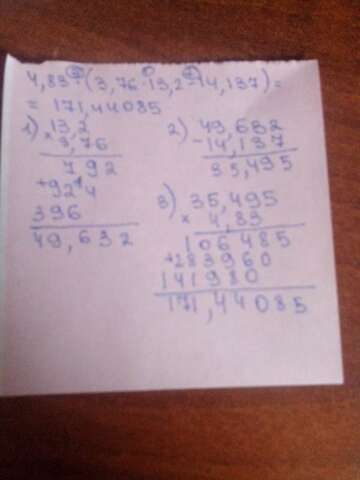 4,83 · (3,76 · 13,2 - 14,137) =
= 171,44085
1) 13,2
× 3,76
792
+ 924
396
49,632
2) 49,632
- 14,137
35,495
3) 35,495
× 4,83
106485
+ 283960
141980
171,44085